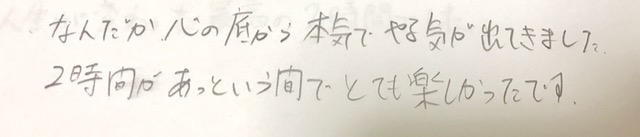 なんだか心の底から本気でやる気が出てきました
2時間があっという間でとても楽しかったです.